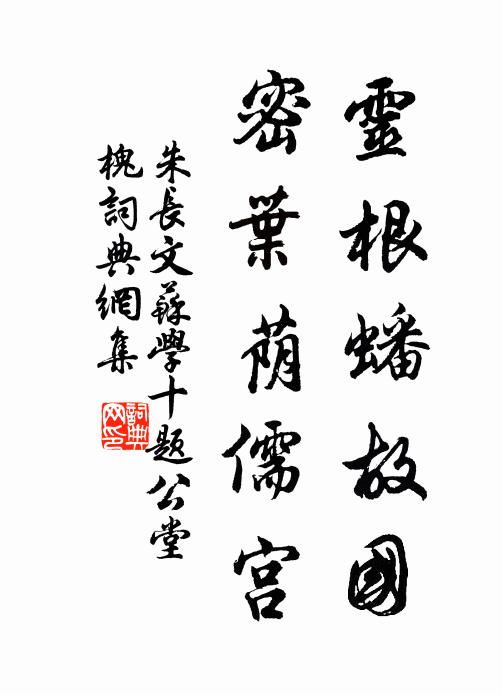 靈根蟠故國
密葉蔭儒宮
朱長文蘇學十題公堂
槐詞典網集
詞典
网印